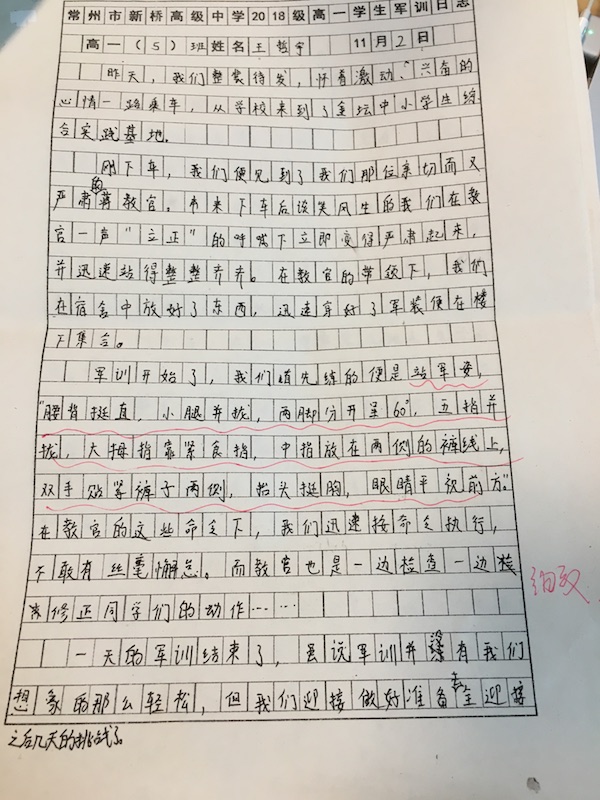 常州市新桥高级中学2018级高一学生军训日志
高一(5)班姓名王哲宇 11月2日
昨天,我们整装待发,怀着激动、兴奋的
心情一路乘车,从学校来到了金坛中小学生综
合实践基地。
刚下车,我们便见到了我们那位亲切而又
严肃的蒋教官。本来下车后谈笑风生的我们在教
官一声"立正"的呼喊下立即变得严肃起来,
并迅速站得整整齐齐。在教官的带领下,我们
在宿舍中放好了东西,迅速穿好了军装便在楼
下集合。
军训开始了,我们首先练的便是站军姿,
"腰背挺直,小腿并拢,两脚分开呈60°,五指并
拢,大拇指靠紧食指,中指放在两侧的裤线上,
双手贴紧裤子两侧,抬头挺胸,眼睛平视前方。"
在教官的这些命令下,我们迅速按命令执行,
不敢有丝毫懈怠。而教官也是一边检查一边
修正同学们的动作……
细致
一天的军训结束了,虽说军训并没有我们
想象的那么轻松,但我们做好准备去迎接
之后几天的挑战了。